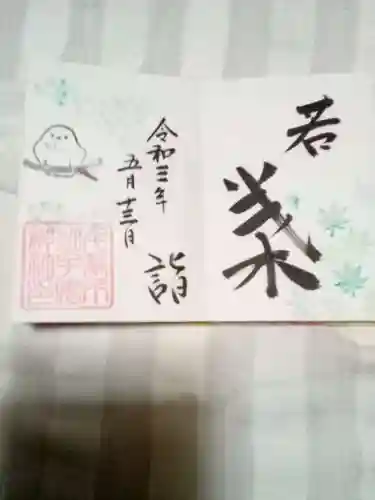 若
葉
令和三年
五月十三日
詣